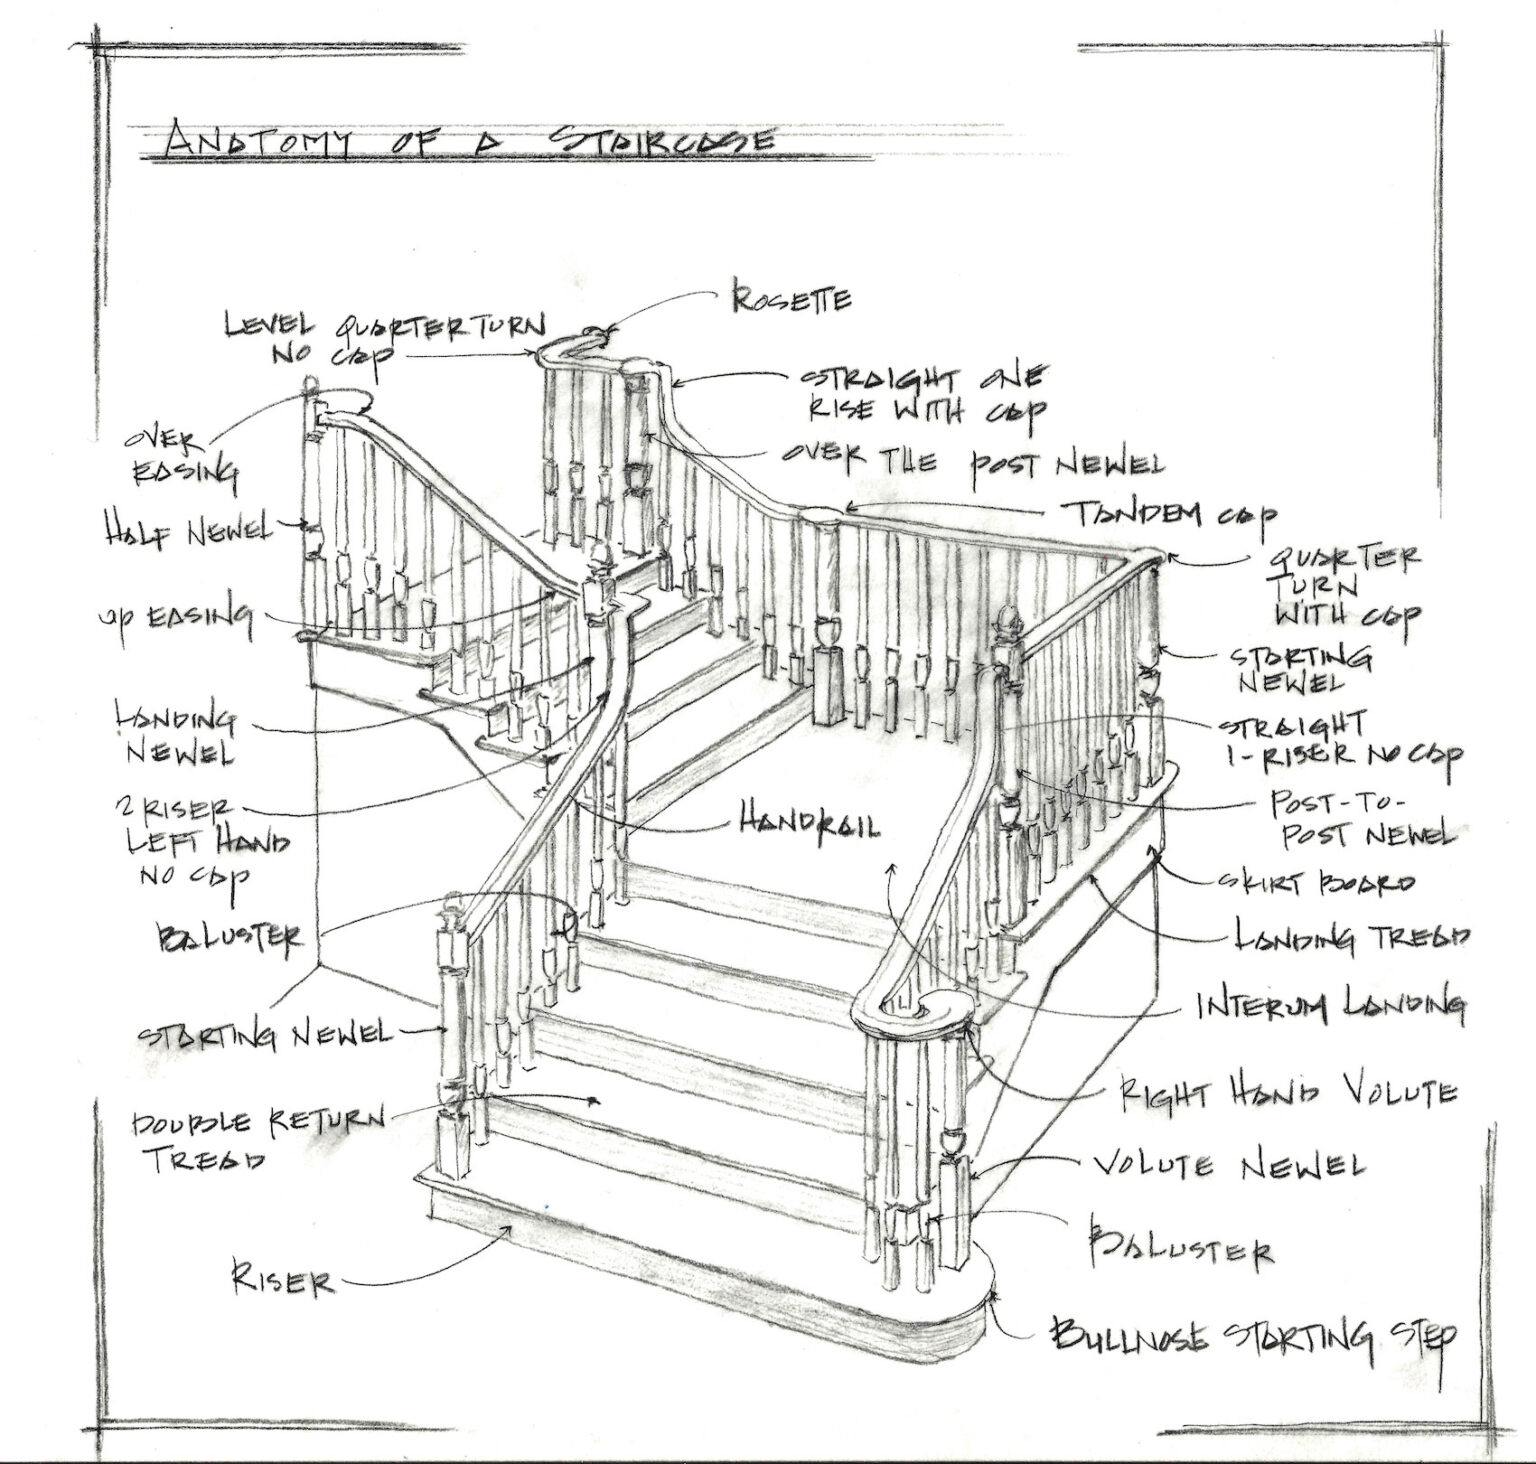 ANATOMY OF A STAIRCASE
ROSETTE
LEVEL QUARTER TURN
NO CAP
STRAIGHT ONE
RISE WITH CAP
OVER
EASING
OVER THE POST NEWEL
HALF NEWEL
TANDEM CAP
QUARTER
TURN
WITH CAP
UP EASING
STARTING
NEWEL
LANDING
NEWEL
STRAIGHT
1-RISER NO CAP
2 RISER
LEFT HAND
NO CAP
HANDRAIL
POST-TO-
POST NEWEL
SKIRT BOARD
BALUSTER
LANDING TREAD
INTERUM LANDING
STARTING NEWEL
RIGHT HAND VOLUTE
DOUBLE RETURN
TREAD
VOLUTE NEWEL
BALUSTER
RISER
BULLNOSE STARTING STEP